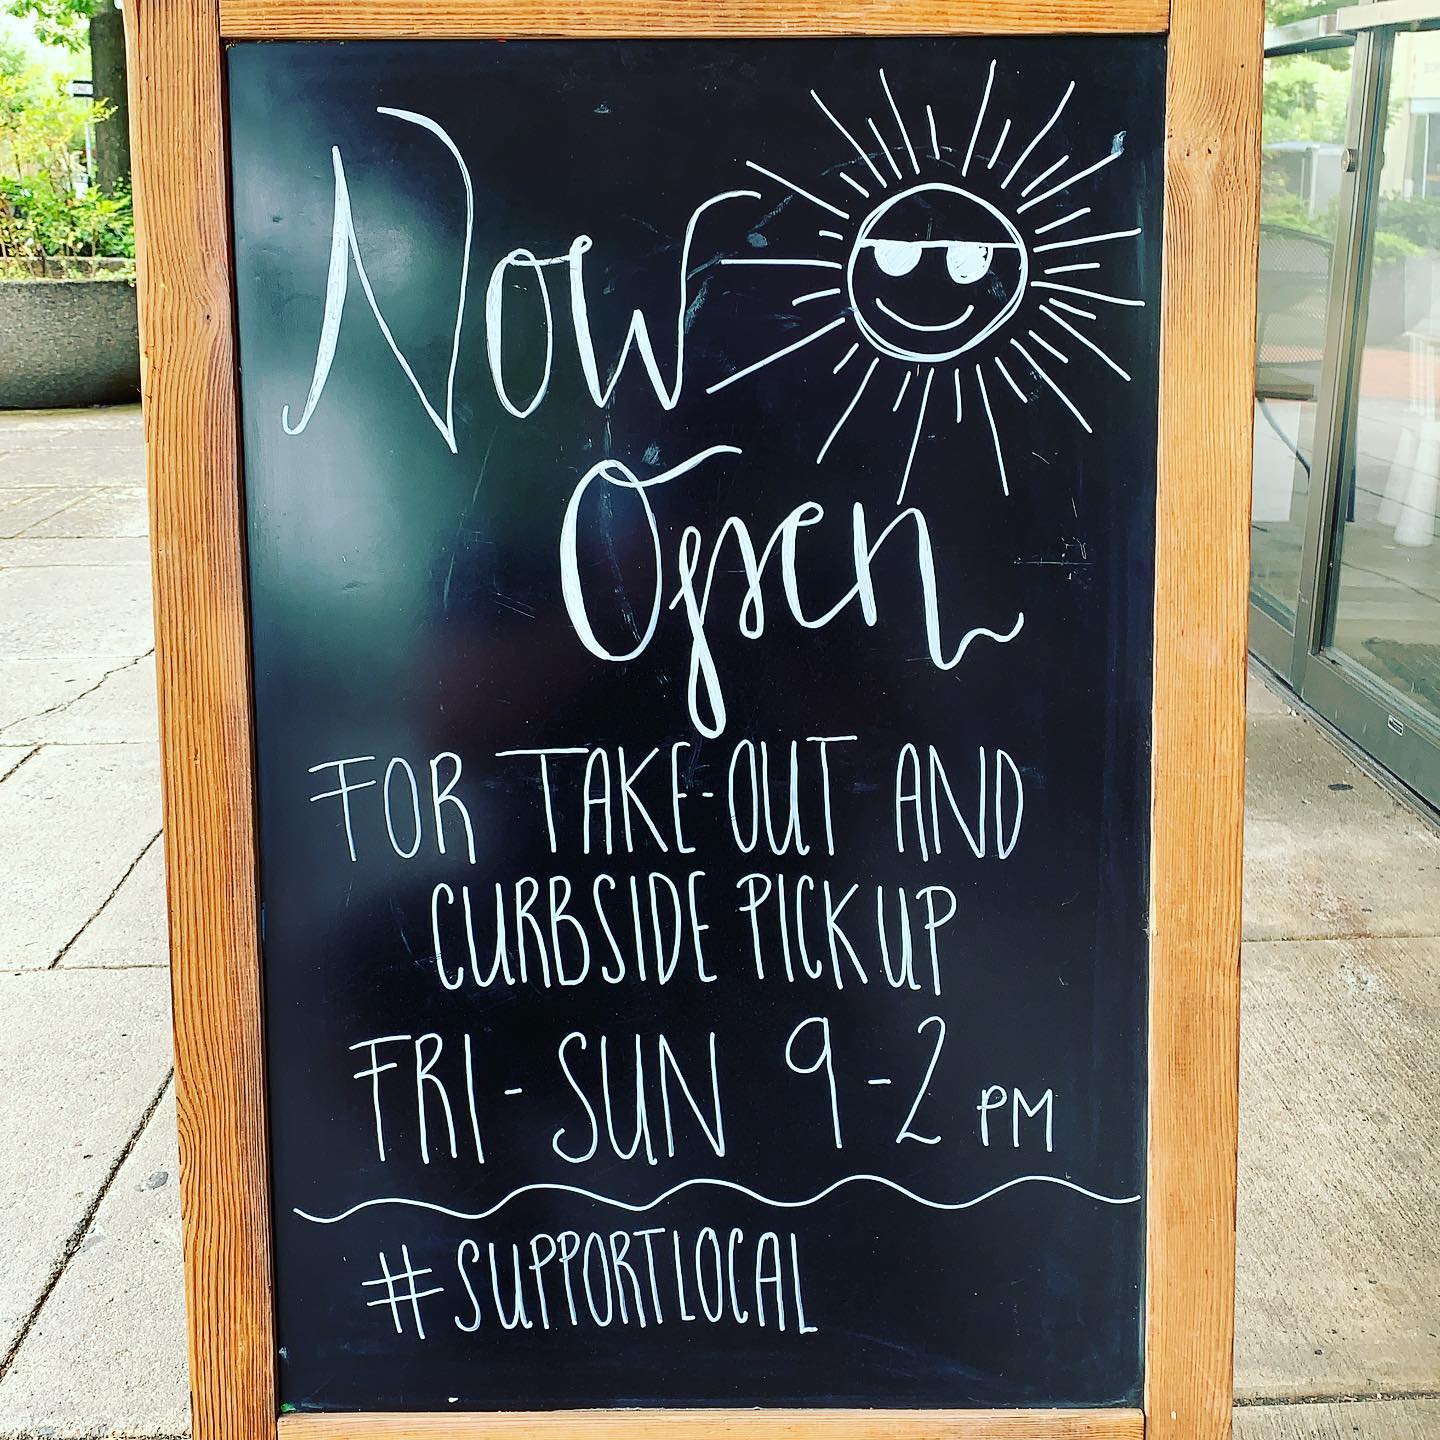 Now
Open
FOR TAKE-OUT AND
CURBSIDE PICKUP
FRI-SUN 9-2 PM
#SUPPORTLOCAL